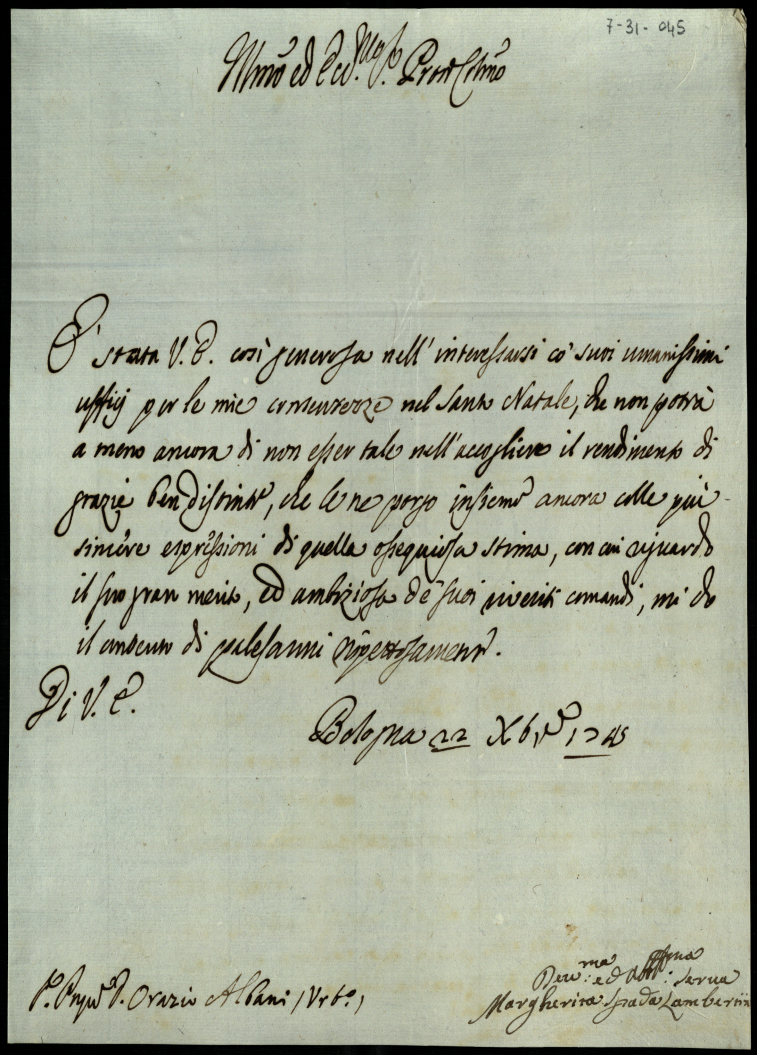 7-31-045
Illmo ed Ecc.mo Sr. Pron Colmo
È stata V. E. così generosa nell' interessarsi co' suoi umanissimi
uffizj per le mie contentezze nel Santo Natale, che non potrà
a meno ancora di non esser tale nell'accogliere il rendimento di
grazie ben distinto, che le ne porgo insieme ancora colle più
sincere espressioni di quella ossequiosa stima, con cui riguardo
il suo gran merito, ed ambiziosa de' suoi riveriti comandi, mi do
il contento di palesarmi rispettosamente.
Di V. E.
Bologna 22 Xbre 1745
D. Orazio Albani (Urbo.)
Devma: ed Obbma: Serva
Margherita Spada Lambertini